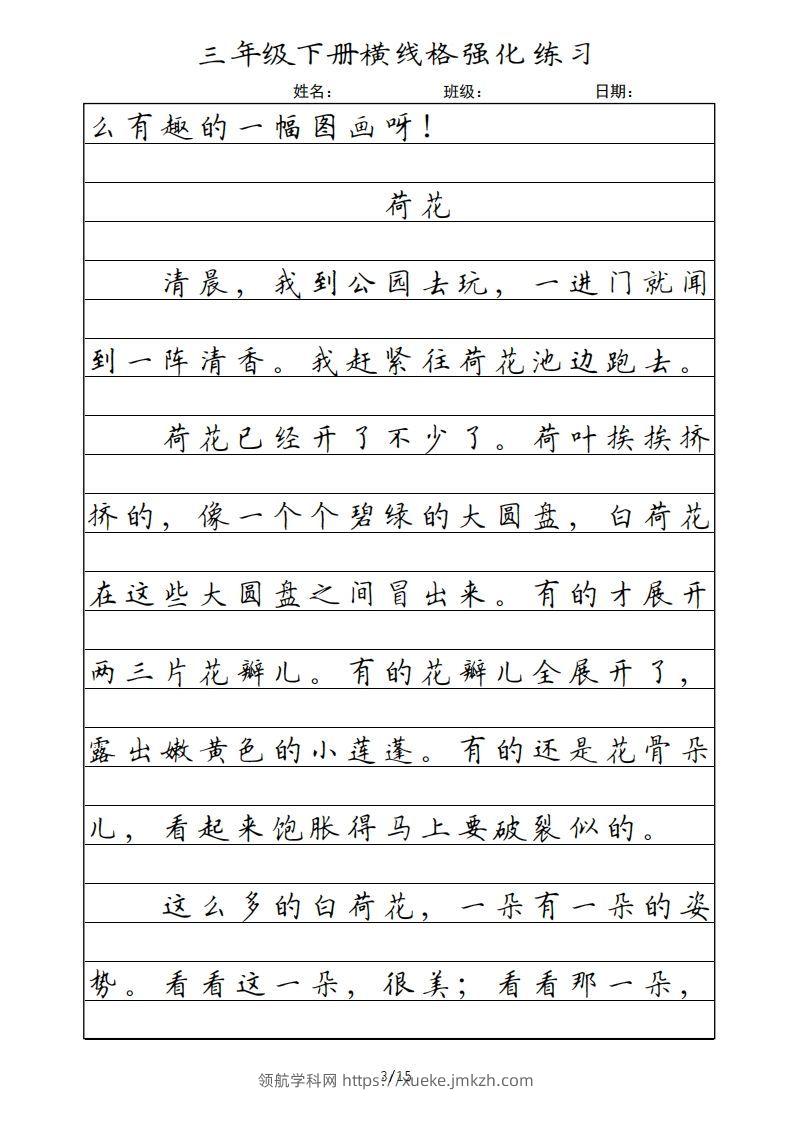 三年级下册横线格强化练习
姓名： 班级： 日期：
么有趣的一幅图画呀！
荷花
清晨，我到公园去玩，一进门就闻
到一阵清香。我赶紧往荷花池边跑去。
荷花已经开了不少了。荷叶挨挨挤
挤的，像一个个碧绿的大圆盘，白荷花
在这些大圆盘之间冒出来。有的才展开
两三片花瓣儿。有的花瓣儿全展开了，
露出嫩黄色的小莲蓬。有的还是花骨朵
儿，看起来饱胀得马上要破裂似的。
这么多的白荷花，一朵有一朵的姿
势。看看这一朵，很美；看看那一朵，
3/15
领航学科网 https://xueke.jmkzh.com